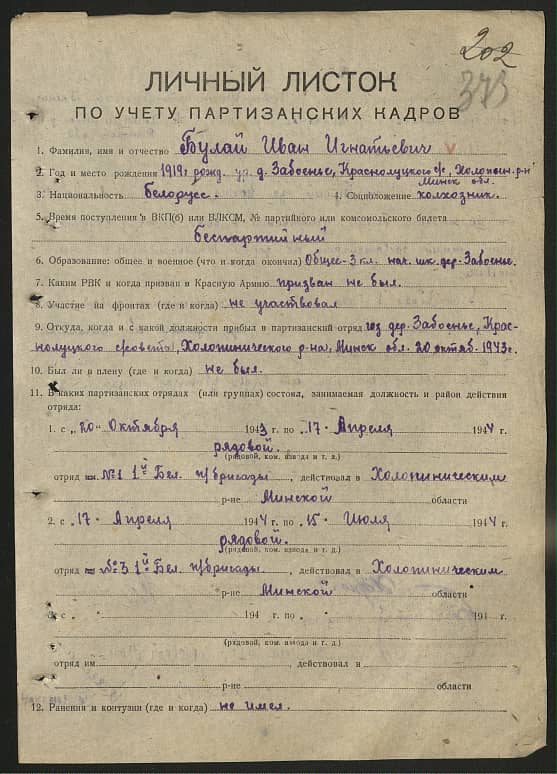 202
373
ЛИЧНЫЙ ЛИСТОК
ПО УЧЕТУ ПАРТИЗАНСКИХ КАДРОВ
1. Фамилия, имя и отчество Булай Иван Игнатьевич
2. Год и место рождения 1919 г рожд. ур. д. Забоенье, Краснолуцкого с/с, Холопин. р-н
Минск обл.
3. Национальность белорусс. 4. Соцположение колхозник.
5. Время поступления в ВКП(б) или ВЛКСМ, № партийного или комсомольского билета
беспартийный
6. Образование: общее и военное (что и когда окончил) Общее-3 кл. нач. шк. дер. Забоенье.
7. Каким РВК и когда призван в Красную Армию призван не был.
8. Участие на фронтах (где и когда) не участвовал
9. Откуда, когда и с какой должности прибыл в партизанский отряд из дер. Забоенье, Крас-
нолуцкого с/совета, Холопинического р-на, Минск обл. 20 октяб. 1943 г.
10. Был ли в плену (где и когда) не был.
11. В каких партизанских отрядах (или группах) состоял, занимаемая должность и район действия
отряда:
1. с „20“ Октября 1943 г. по „17“ Апреля 1944 г.
рядовой.
(рядовой, ком. взвода и т. д.)
отряд им. №1 1й Бел. п/бригады, действовал в Холопиническим
р-не Минской области
2. с „17“ Апреля 1944 г. по „15“ Июля 1944 г.
рядовой.
(рядовой, ком. взвода и т. д.)
отряд им. №3 1й Бел. п/бригады, действовал в Холопиническим
р-не Минской области
3. с 194 г. по 194 г.
(рядовой, ком. взвода и т. д.)
отряд им. действовал в
р-не области
12. Ранения и контузии (где и когда) не имел.